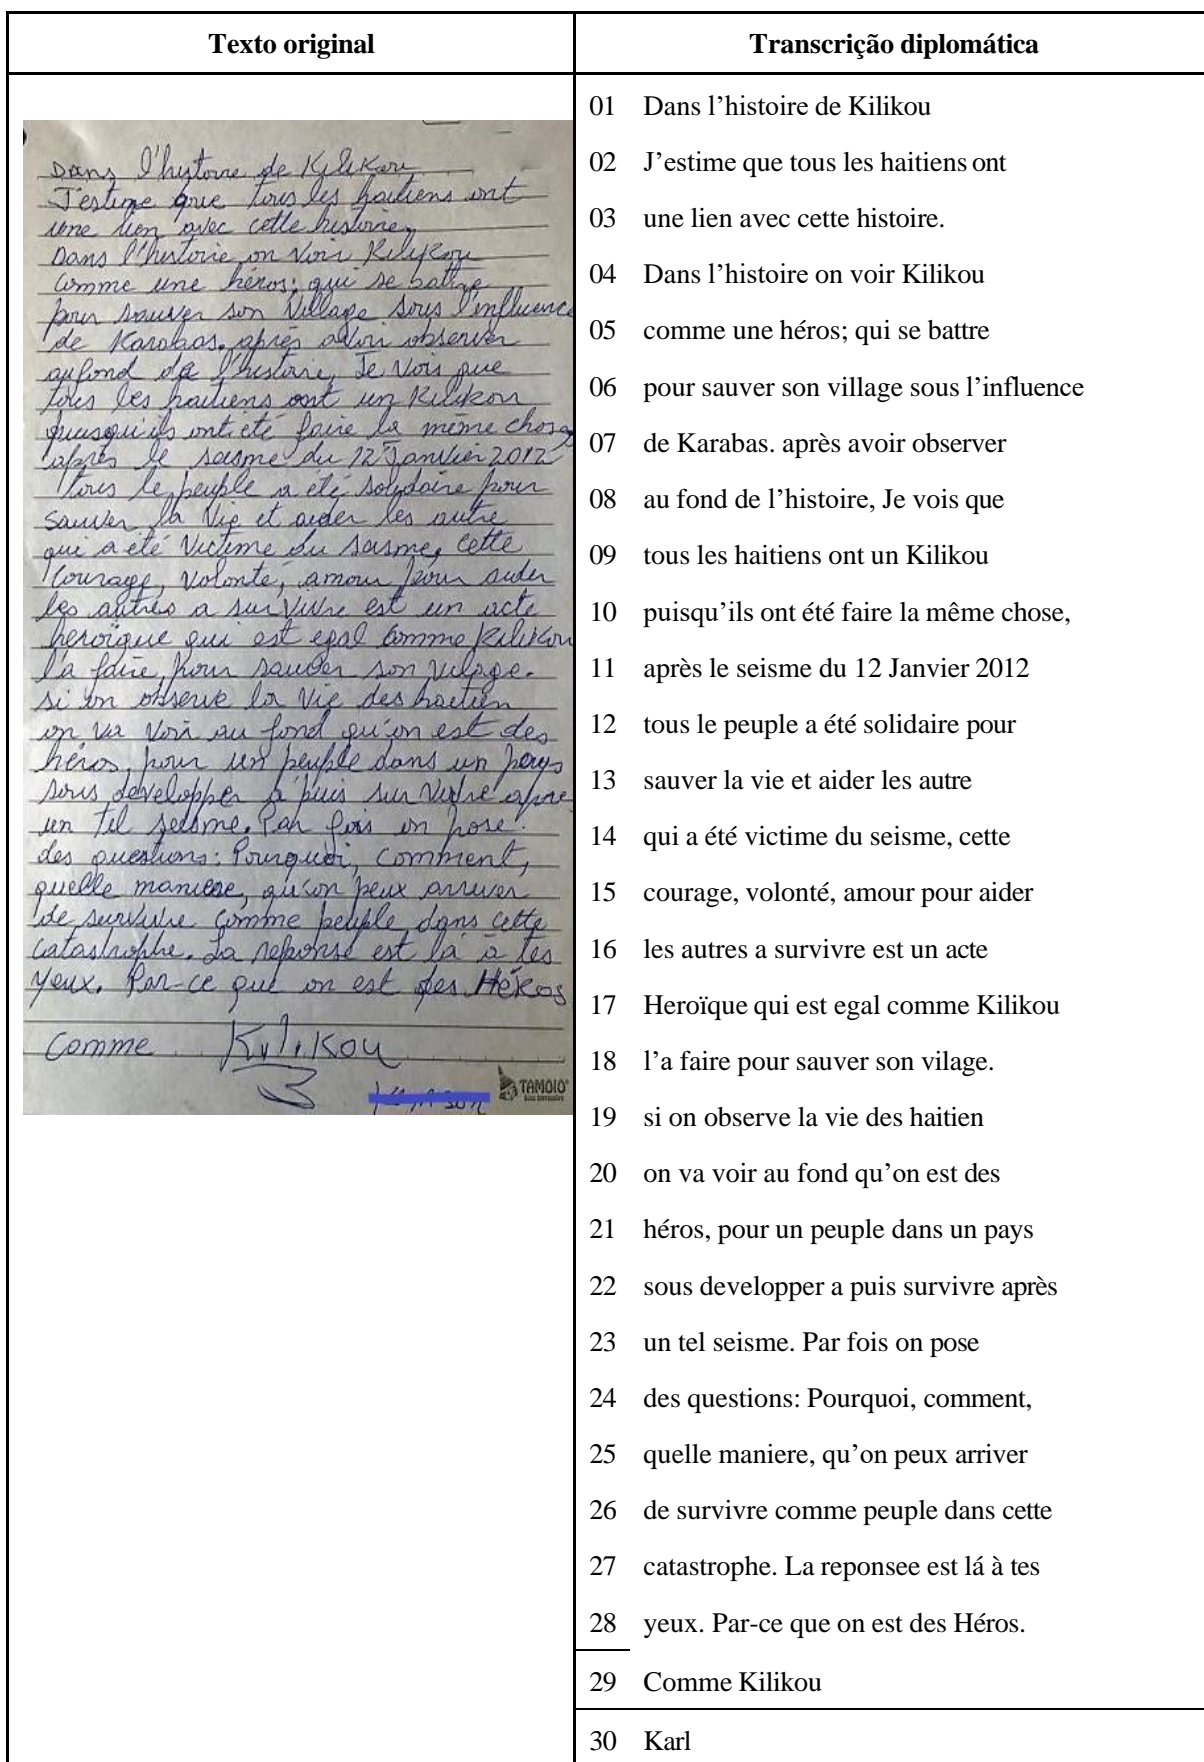 Texto original
Transcrição diplomática
Dans l'histoire de Kilikou
J'estime que tous les haitiens ont
une lien avec cette histoire.
Dans l'histoire on voir Kilikou
comme une héros; qui se battre
pour sauver son village sous l'influence
de Karabas. après avoir observer
au fond de l'histoire, Je vois que
tous les haitiens ont un Kilikou
puisqu'ils ont été faire la même chose
après le seisme du 12 Janvier 2012
tous le peuple a été solidaire pour
sauver la vie et aider les autre
qui a été victime du seisme, cette
courage, volonté, amour pour aider
les autres a survivre est un acte
heroïque qui est egal comme Kilikou
l'a faire pour sauver son vilage.
si on observe la vie des haitien
on va voir au fond qu'on est des
héros, pour un peuple dans un pays
sous developper a puis survivre après
un tel seisme. Par fois on pose
des questions: Pourquoi, comment,
quelle maniere, qu'on peux arriver
de survivre comme peuple dans cette
catastrophe. La reponse est là à tes
yeux. Par-ce que on est des Héros
Comme Kilikou
TAMOIO
01 Dans l’histoire de Kilikou
02 J’estime que tous les haitiens ont
03 une lien avec cette histoire.
04 Dans l’histoire on voir Kilikou
05 comme une héros; qui se battre
06 pour sauver son village sous l’influence
07 de Karabas. après avoir observer
08 au fond de l’histoire, Je vois que
09 tous les haitiens ont un Kilikou
10 puisqu’ils ont été faire la même chose,
11 après le seisme du 12 Janvier 2012
12 tous le peuple a été solidaire pour
13 sauver la vie et aider les autre
14 qui a été victime du seisme, cette
15 courage, volonté, amour pour aider
16 les autres a survivre est un acte
17 Heroïque qui est egal comme Kilikou
18 l’a faire pour sauver son vilage.
19 si on observe la vie des haitien
20 on va voir au fond qu’on est des
21 héros, pour un peuple dans un pays
22 sous developper a puis survivre après
23 un tel seisme. Par fois on pose
24 des questions: Pourquoi, comment,
25 quelle maniere, qu’on peux arriver
26 de survivre comme peuple dans cette
27 catastrophe. La reponsee est lá à tes
28 yeux. Par-ce que on est des Héros.
29 Comme Kilikou
30 Karl